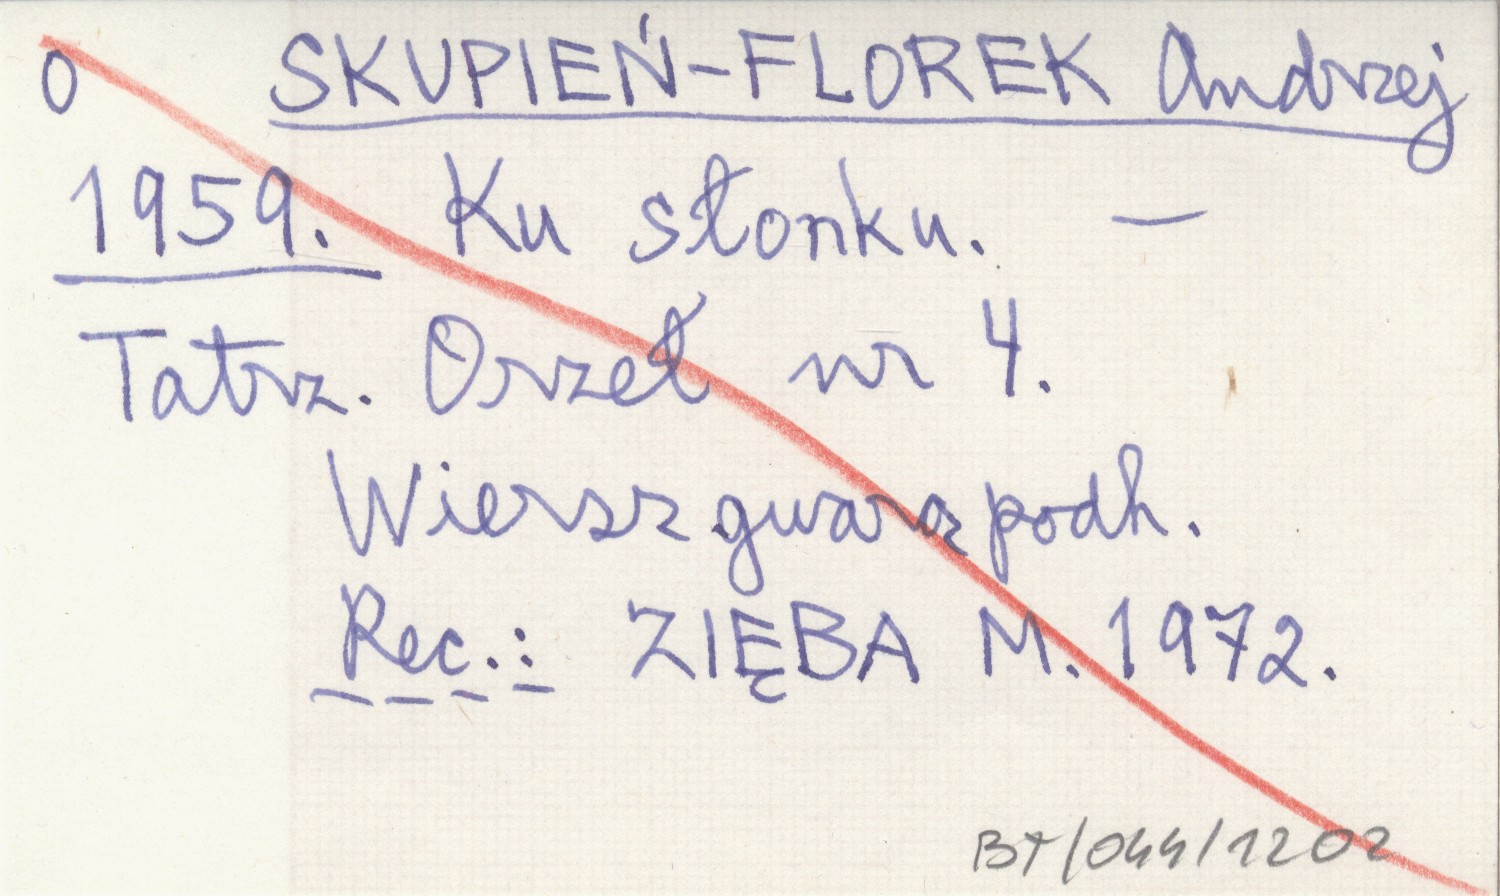 O SKUPIEŃ-FLOREK Andrzej
1959. Ku słonku. —
Tatrz. Orzeł nr 4.
Wiersz gwarą podh.
Rec.: ZIĘBA M. 1972.
BT/044/1202